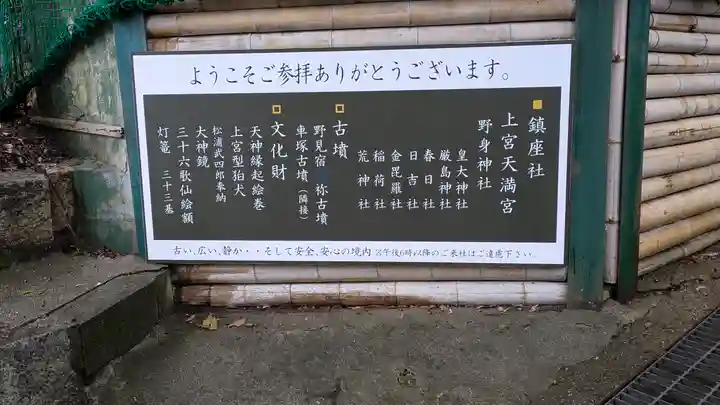 ようこそご参拝ありがとうございます。
鎮座社
上宮天満宮
野身神社
皇大神社
厳島神社
春日社
日吉社
金毘羅社
稲荷社
荒神社
古墳
野見宿祢古墳
車塚古墳(隣接)
文化財
天神縁起絵巻
上宮型狛犬
松浦武四郎奉納
大神鏡
三十六歌仙絵額
灯篭 三十三基
古い、広い、静か・・そして安全、安心の境内 ※午後6時以降のご来社はご遠慮下さい。